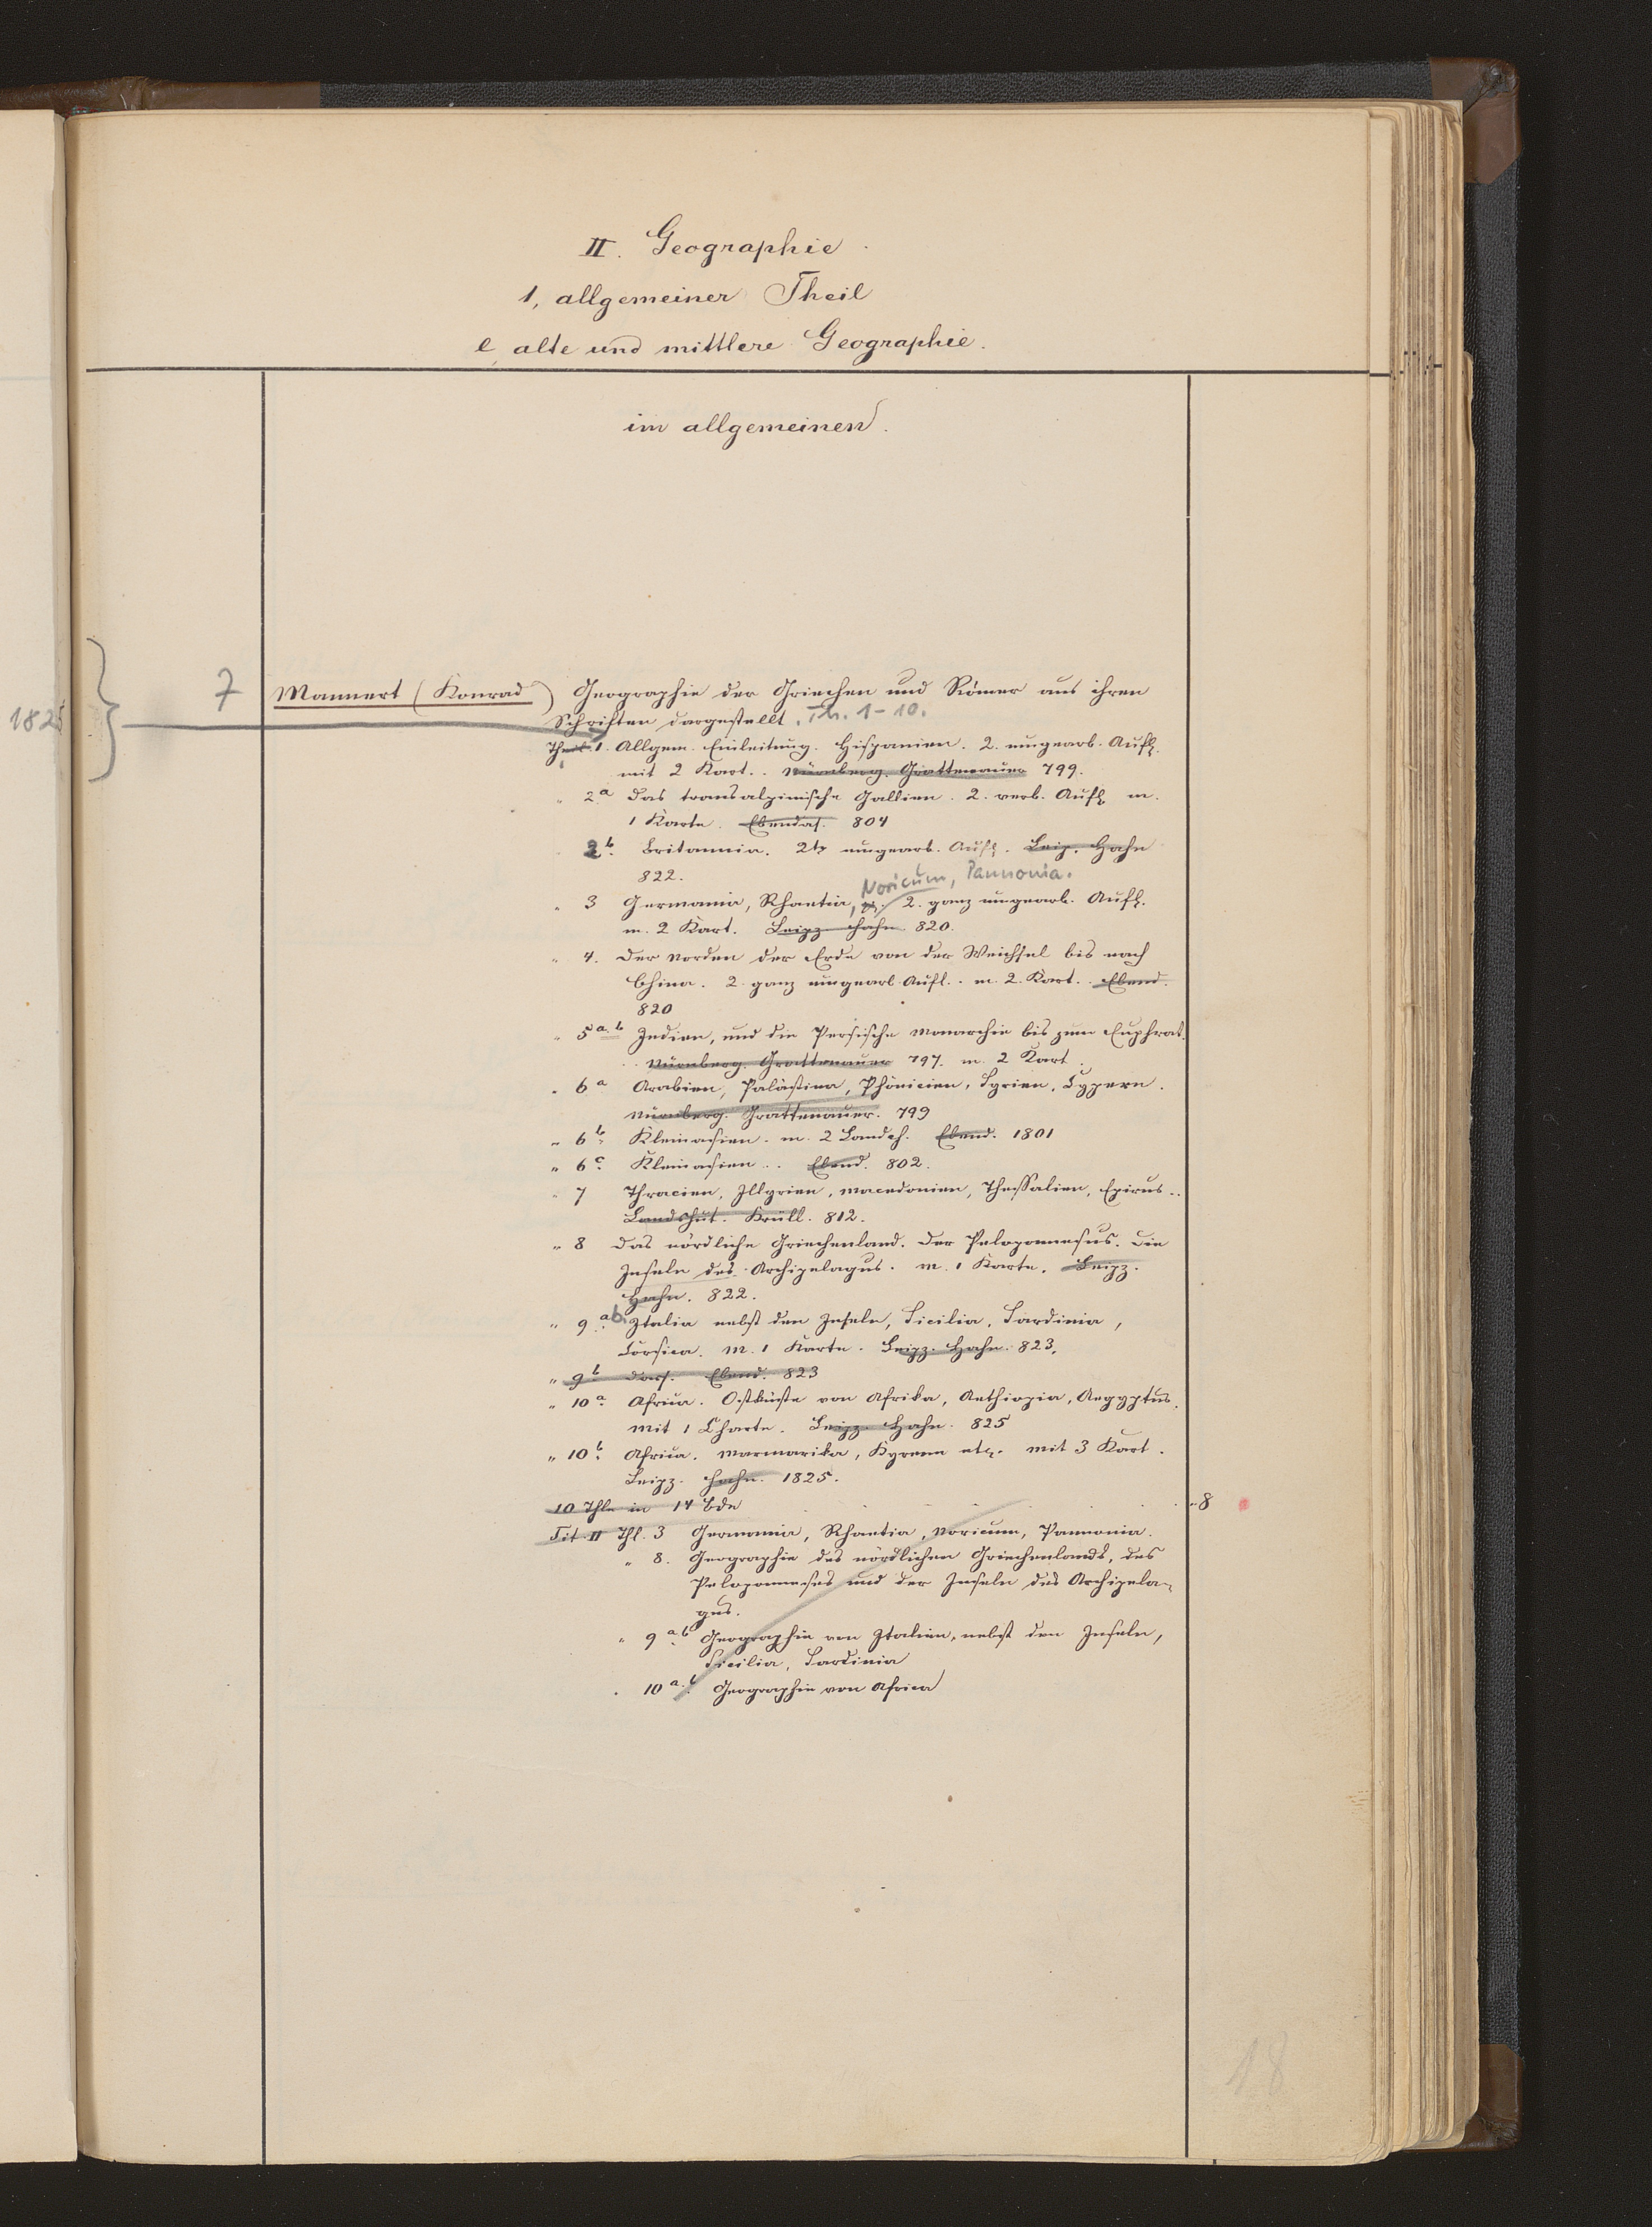 II. Geographie
1, allgemeiner Theil
e, alte und mittlere Geographie.
im allgemeinen.
7
1825
Mannert (Konrad) Geographie der Griechen und Römer aus ihren
Schriften dargestellt. Th. 1-10.
Theil. 1. Allgem. Einleitung. Hispanien. 2. umgearb. Aufl.
mit 2 Kart.. Nürnberg. Grattenauer 799.
" 2.a Das transalpinische Gallien. 2. verb. Aufl m.
1 Karte. Ebendas. 804
2b. Britannia. 2te umgearb. Aufl. Leip. Hahn
822.
Noricum, Pannonia.
" 3 Germania, Rhaetia, 2. ganz umgearb. Aufl.
m. 2 Kart. Leipz. Hahn 820.
" 4. Der Norden der Erde von der Weichsel bis nach
China. 2. ganz umgearb. Aufl.. m. 2. Kart.. Ebend.
820
" 5a.b Indien, und die Persische Monarchie bis zum Euphrat.
.. Nürnberg. Grattenauer 797. m. 2 Kart.
" 6a Arabien, Palästina, Phönicien, Syrien, Cypern.
Nürnberg. Grattenauer. 799
" 6b. Kleinasien. m. 2 Landch. Ebend. 1801
" 6c. Kleinasien .. Ebend. 802.
" 7 Thracien, Illyrien, Macedonien, Thessalien, Epirus..
Landshut. Krüll. 812.
" 8 Das nördliche Griechenland. Der Peloponnesus. Die
Inseln des Archipelagus. m. 1 Karte. Leipz.
Hahn. 822.
" 9.ab. Italia nebst den Inseln, Sicilia, Sardinia,
Corsica. m. 1 Karte. Leipz. Hahn. 823.
" 9b dass. Ebend. 823
" 10a. Africa. Ostküste von Afrika, Aethiopia, Aegyptus.
mit 1 Charte. Leipz. Hahn. 825
" 10b. Africa. Marmarika, Kyrene etc. mit 3 Kart.
Leipz. Hahn. 1825.
10 Thle in 14 Bde
8
Tit. II Thl. 3 Germania, Rhaetia, Noricum, Pannonia.
" 8. Geographie des nördlichen Griechenlands, des
Peloponneses und der Inseln des Archipela-
gus.
" 9a.b Geographie von Italien, nebst den Inseln,
Sicilia, Sardinia
" 10a.b. Geographie von Africa
18